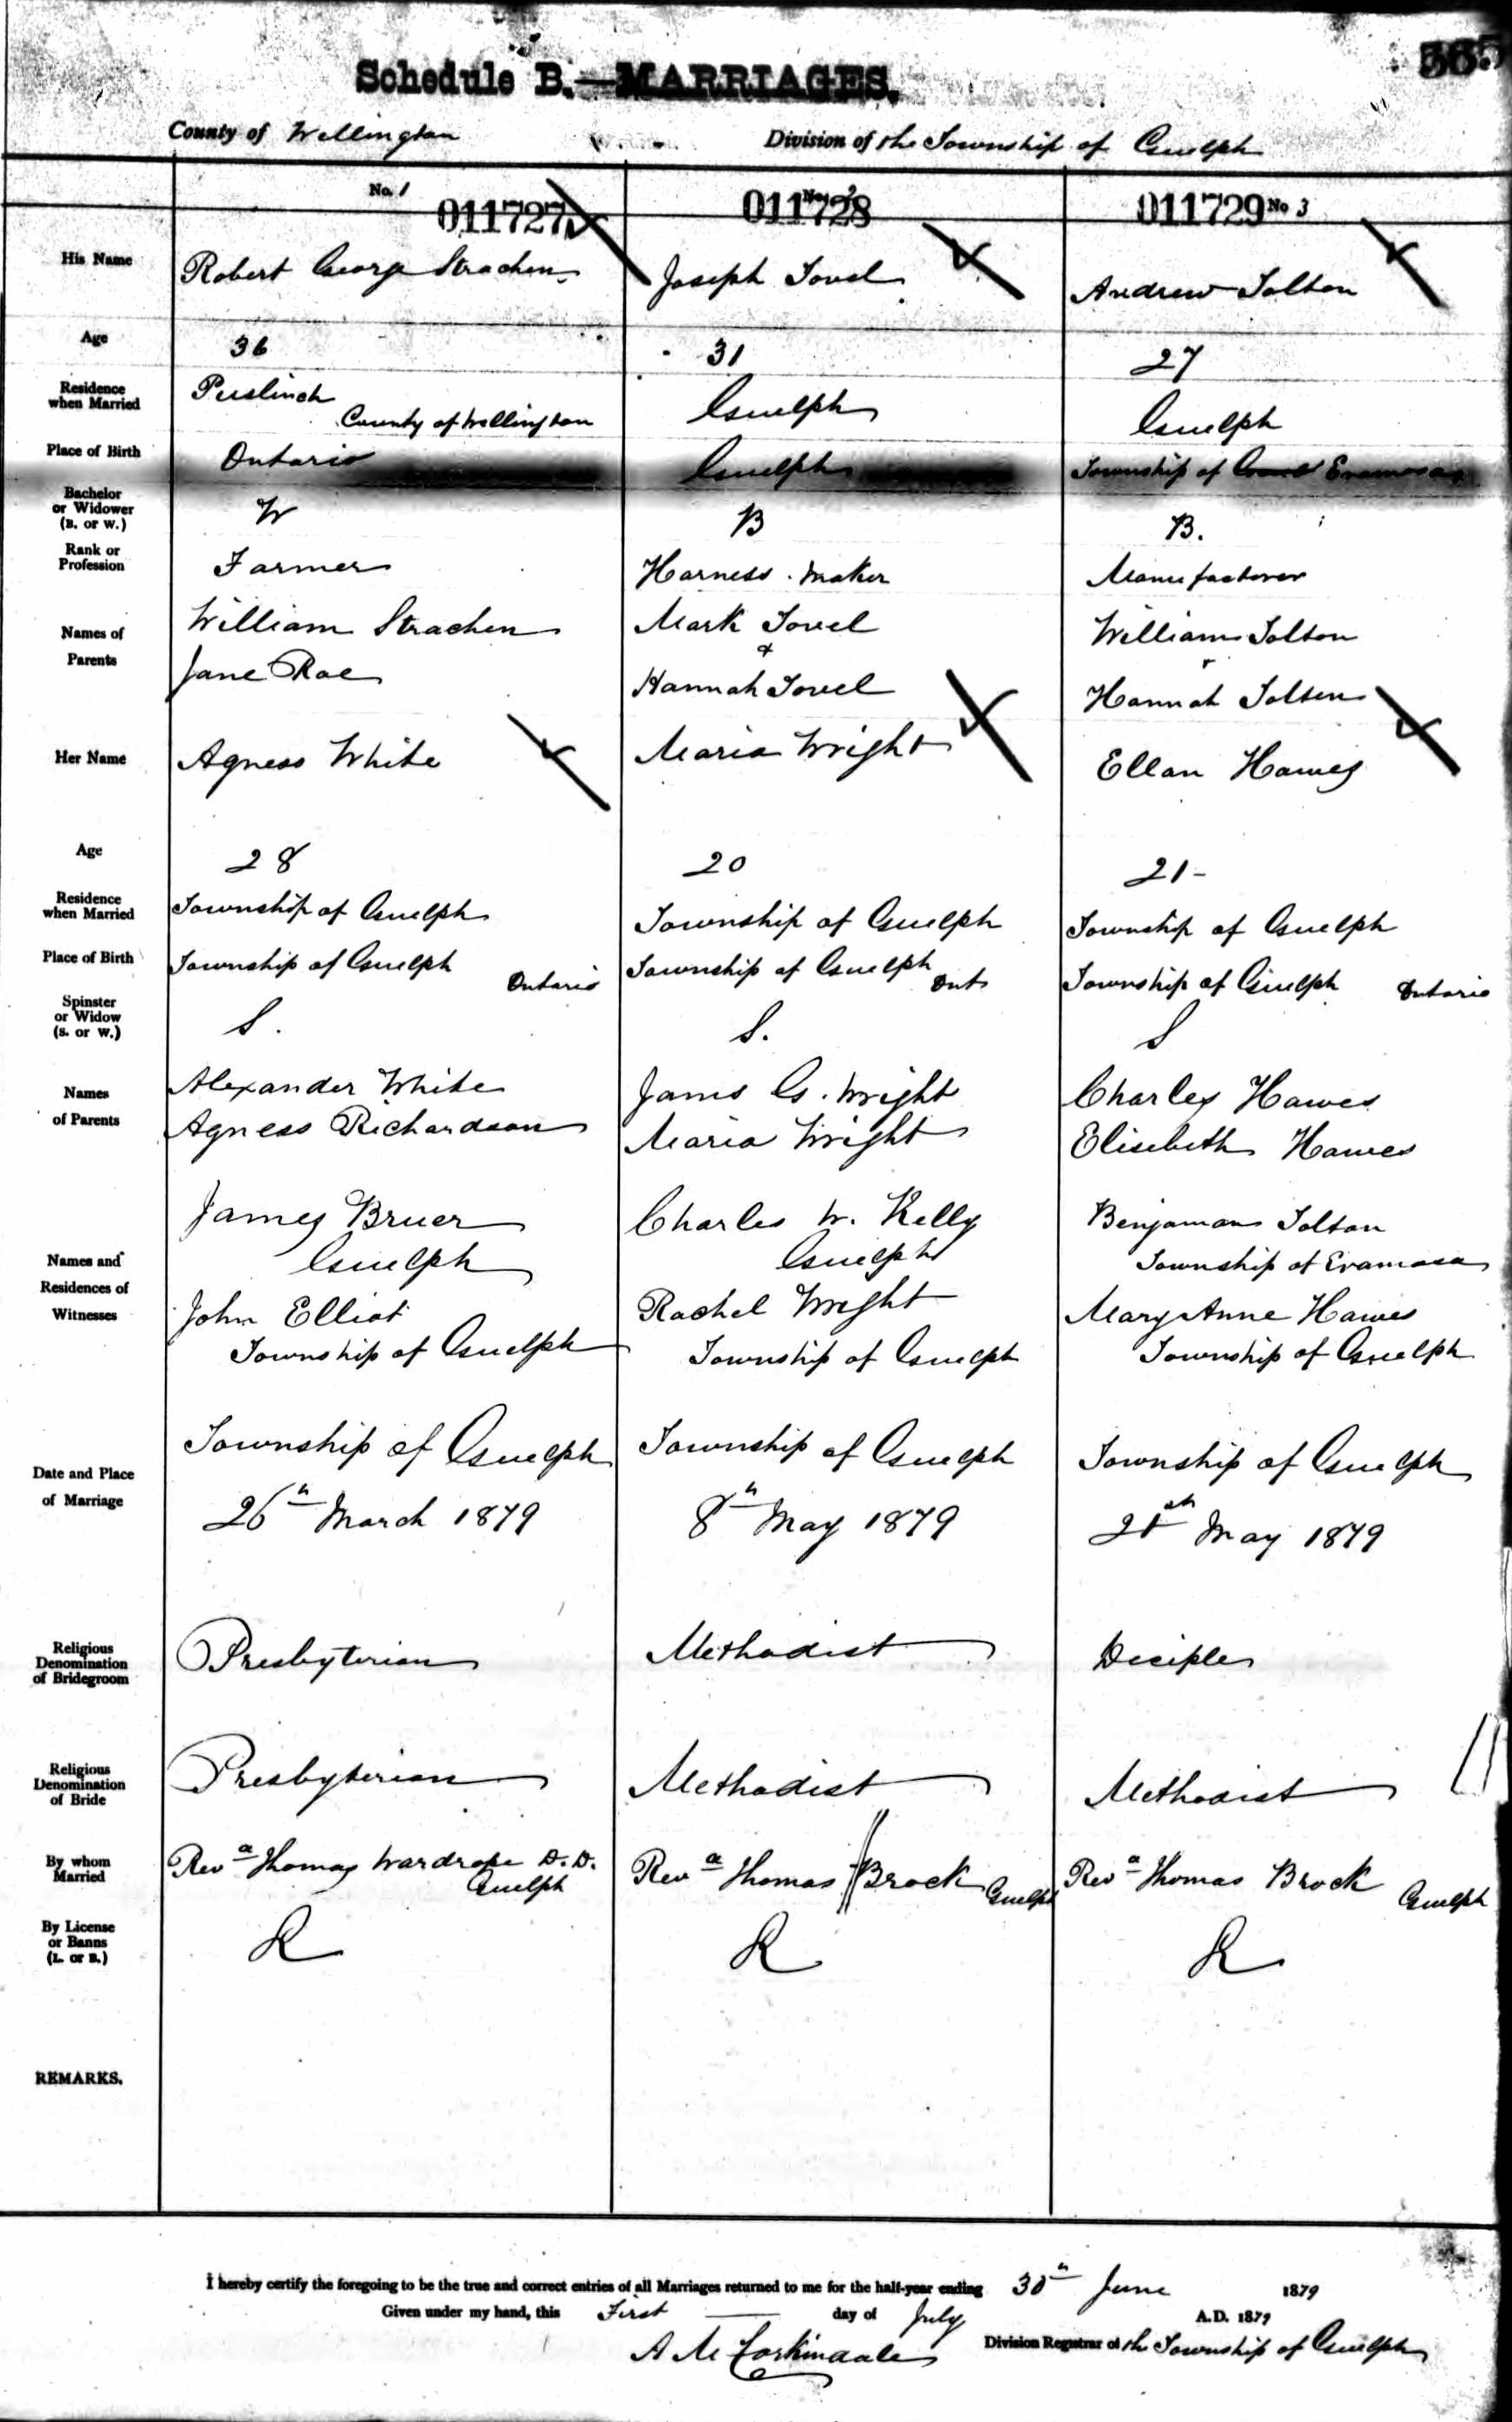 Schedule B.—MARRIAGES.
County of Wellington
Division of the Township of Guelph
No. 1
011727
No 2
011728
011729 No 3
His Name
Robert George Strachen
Joseph Tovel
Andrew Tolton
Age
36
31
27
Residence
when Married
Puslinch
County of Wellington
Guelph
Guelph
Place of Birth
Ontario
Guelph
Township of Eramosa
Bachelor
or Widower
(B. or W.)
W
B
B.
Rank or
Profession
Farmer
Harness. maker
Manufacturer
Names of
Parents
William Strachen
Jane Rae
Mark Tovel
&
Hannah Tovel
William Tolton
Hannah Tolten
Her Name
Agness White
Maria Wright
Ellan Hawes
Age
28
20
21-
Residence
when Married
Township of Guelph
Township of Guelph
Township of Guelph
Place of Birth
Township of Guelph
Ontario
Township of Guelph
Ont
Township of Guelph
Ontario
Spinster
or Widow
(S. or W.)
S.
S.
S
Names
of Parents
Alexander White
Agness Richardson
James G. Wright
Maria Wright
Charles Hawes
Elisebeth Hawes
Names and
Residences of
Witnesses
James Bruer
Guelph
John Elliot
Township of Guelph
Charles W. Kelly
Guelph
Rachel Wright
Township of Guelph
Benjaman Tolton
Township of Eramosa
Mary Anne Hawes
Township of Guelph
Date and Place
of Marriage
Township of Guelph
26th March 1879
Township of Guelph
8th May 1879
Township of Guelph
May 1879
Religious
Denomination
of Bridegroom
Presbyterian
Methodist
Disciple
Religious
Denomination
of Bride
Presbyterian
Methodist
Methodist
By whom
Married
Revd Thomas Wardrope D.D.
Guelph
Revd Thomas Brock Guelph
Revd Thomas Brock Guelph
By License
or Banns
(L. or B.)
L
L
L
REMARKS.
I hereby certify the foregoing to be the true and correct entries of all Marriages returned to me for the half-year ending 30th June 1879
Given under my hand, this First day of July A.D. 1879
Division Registrar of the Township of Guelph